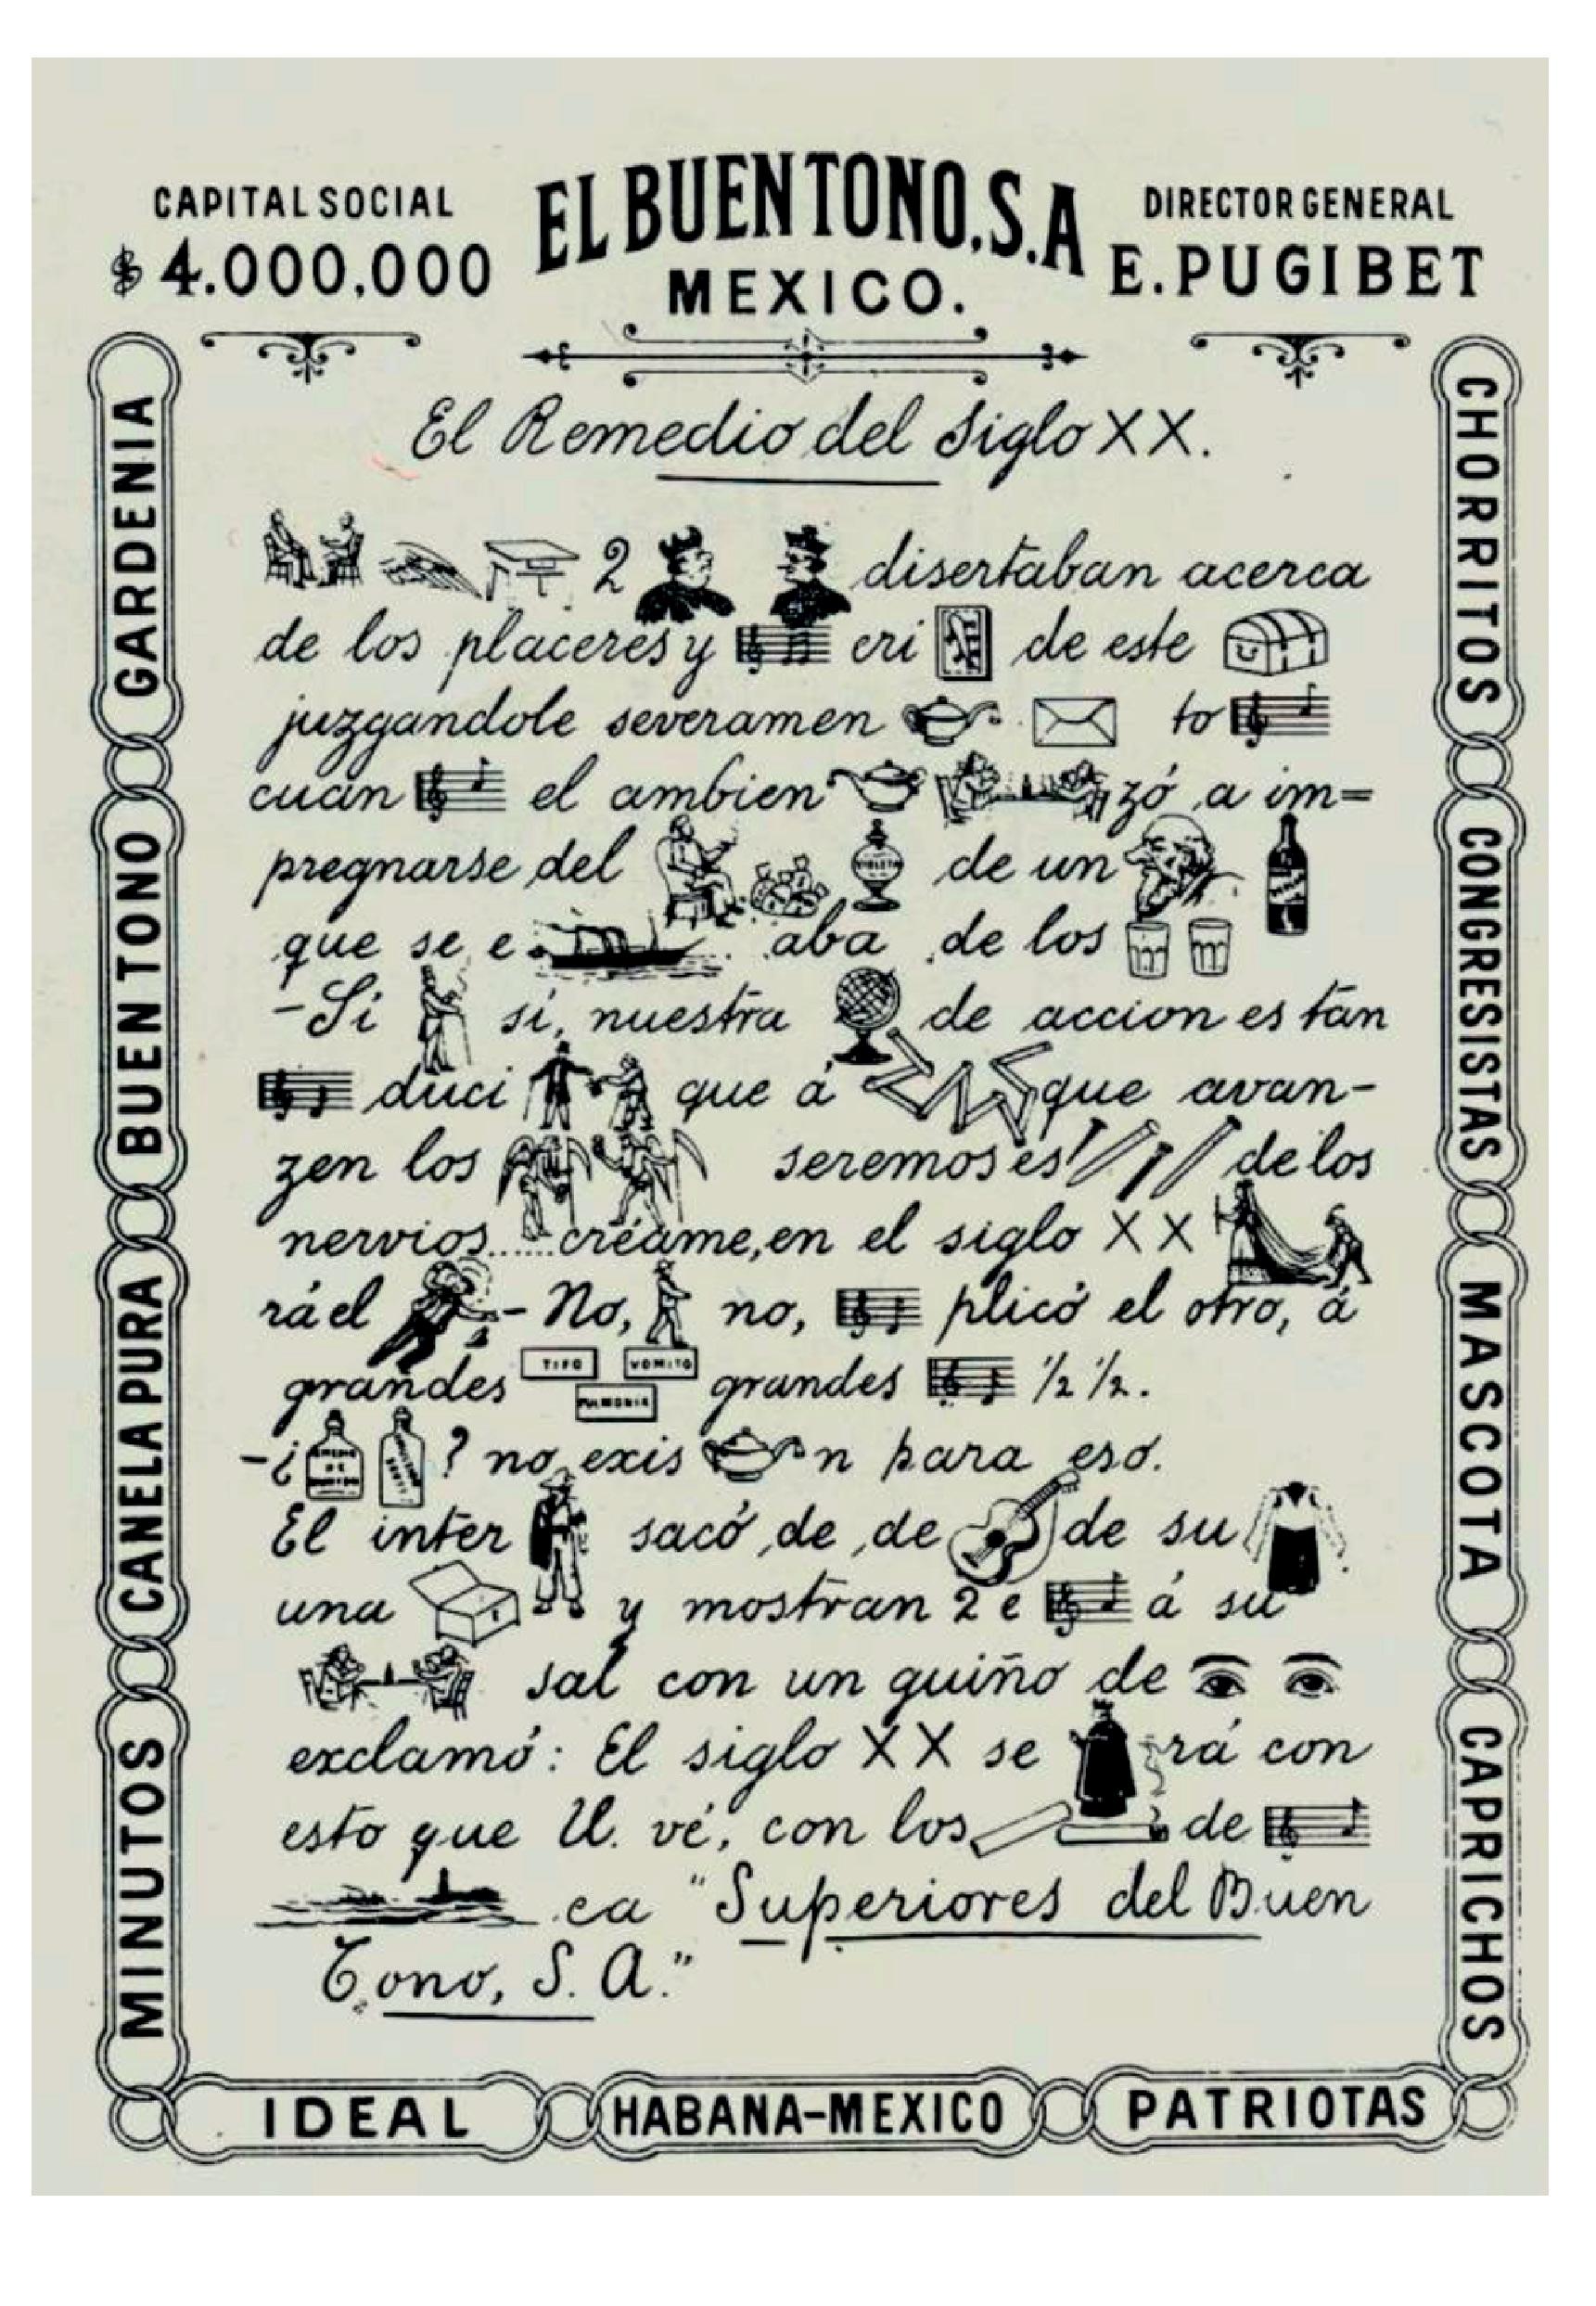 CAPITAL SOCIAL
$ 4.000.000
EL BUEN TONO, S.A
MEXICO.
DIRECTOR GENERAL
E. PUGIBET
GARDENIA
BUEN TONO
CANELA PURA
MINUTOS
El Remedio del Siglo XX.
2 disertaban acerca
de los placeres y cri de este
juzgandole severamen to
cuan el ambien zó a im=
pregnarse del VIOLETA de un
que se e aba de los
-Si si, nuestra de accion es tan
duci que á que avan-
zen los seremos es de los
nervios......créame, en el siglo XX
rá el - No, no, plicó el otro, á
grandes TIFO VOMITO PULMONIA grandes ½ ½.
-¿ ? no exis n para eso.
El inter sacó de de de su
una y mostran 2 e á su
sal con un guiño de
exclamó: El siglo XX se rá con
esto que U. vé, con los de
ca "Superiores del Buen
Tono, S. A."
CHORRITOS
CONGRESISTAS
MASCOTA
CAPRICHOS
IDEAL
HABANA-MEXICO
PATRIOTAS